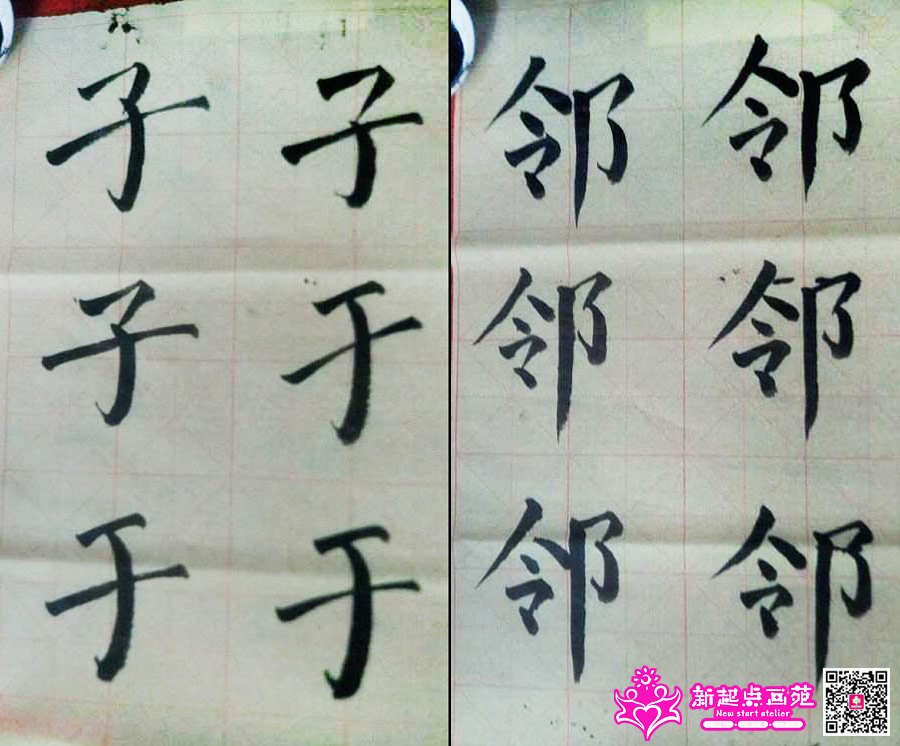 子 子
子 于
于 于
邻 邻
邻 邻
邻 邻
新起点画苑
New start atelier